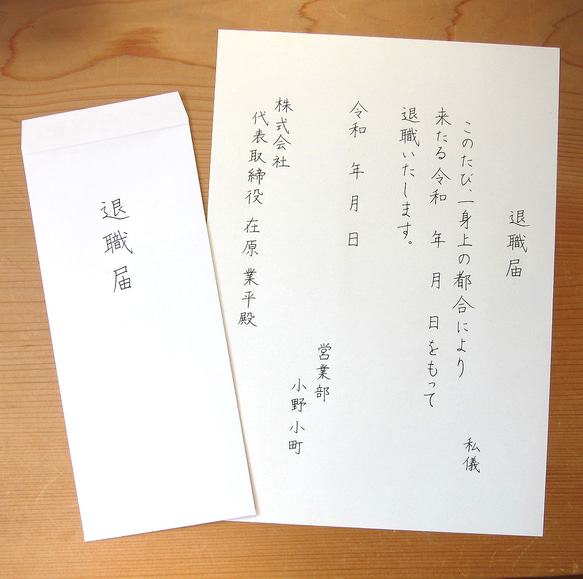 退職届
私儀
このたび、一身上の都合により
来たる令和 年 月 日をもって
退職いたします。
令和 年 月 日
営業部
小野 小町
株式会社
代表取締役 在原 業平殿
退職届